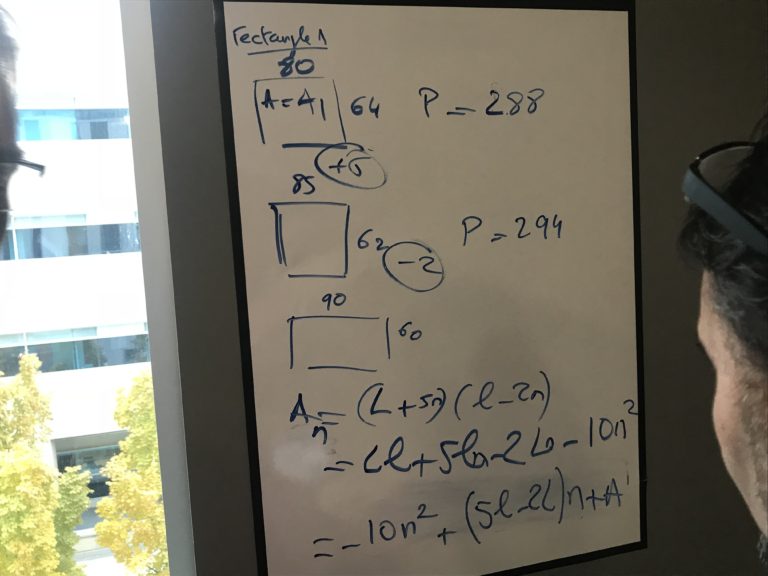 rectangle 1
80
A = A1 64 P = 288
+5
85
62 P = 294
-2
90
60
An = (L + 5n) (l - 2n)
= Ll + 5ln - 2Ln - 10n²
= -10n² + (5l - 2L)n + A